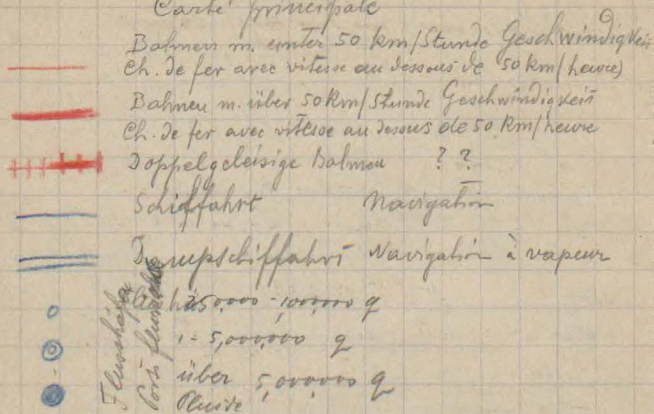 Carte principale
Bahnen m. unter 50 km/Stunde Geschwindigkeit
Ch. de fer avec vitesse au dessous de 50 km/heure)
Bahnen m. über 50 km/Stunde Geschwindigkeit
Ch. de fer avec vitesse au dessus de 50 km/heure
Doppelgeleisige Bahnen ? ?
Schiffahrt Navigation
Dampfschiffahrt Navigation à vapeur
Flusshäfen
Ports fluviaux
250,000 - 1,000,000 q
1 - 5,000,000 q
über 5,000,000 q